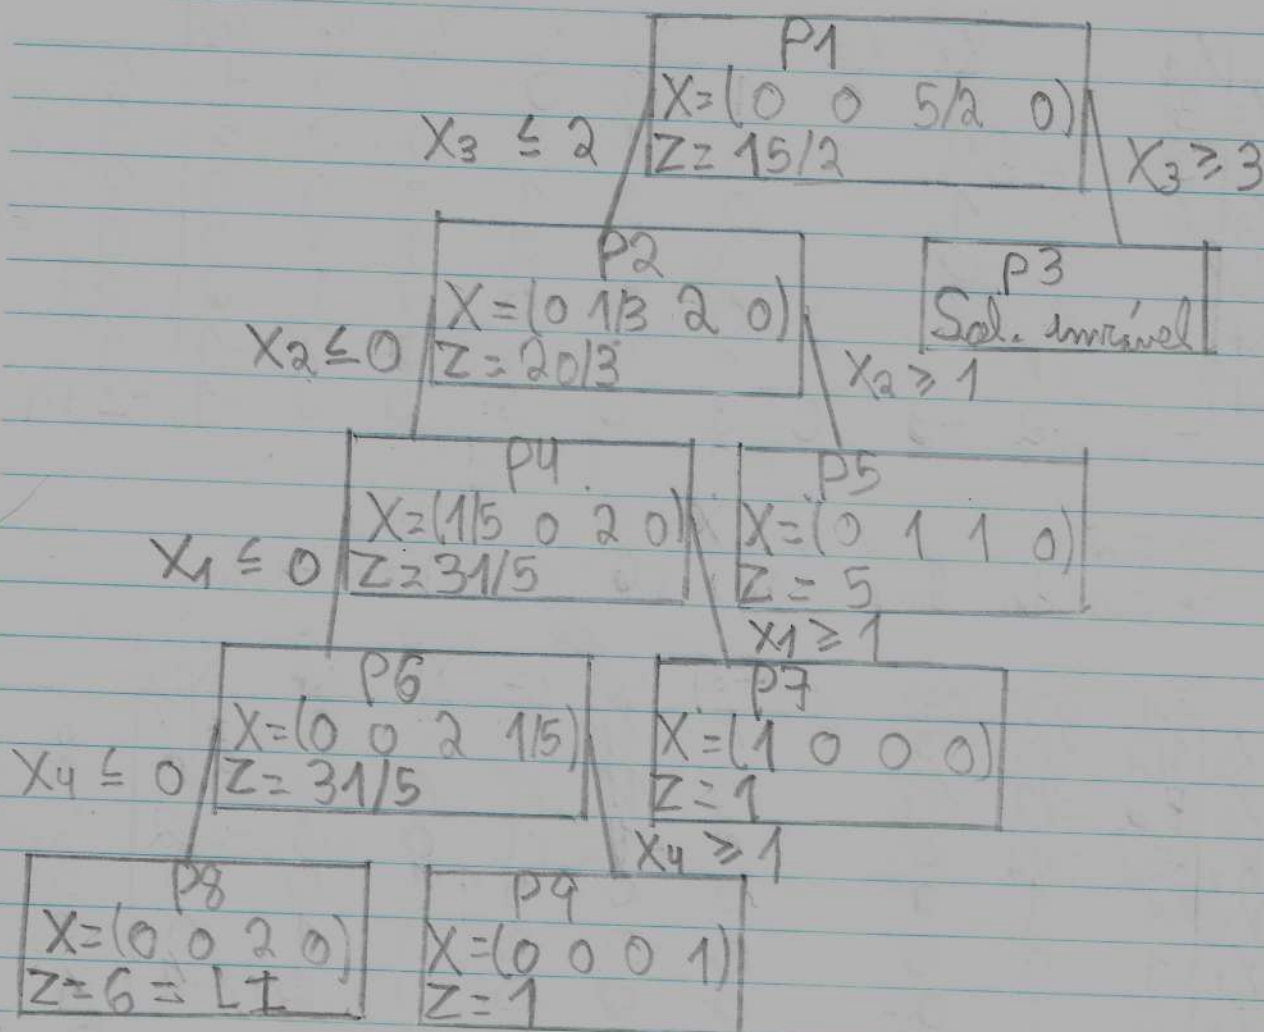 P1
X=(0 0 5/2 0)
Z=15/2
X3 ≤ 2
X3 ≥ 3
P2
X=(0 1/3 2 0)
Z=20/3
P3
Sol. inviável
X2 ≤ 0
X2 ≥ 1
P4
X=(1/5 0 2 0)
Z=31/5
P5
X=(0 1 1 0)
Z=5
X1 ≤ 0
X1 ≥ 1
P6
X=(0 0 2 1/5)
Z=31/5
P7
X=(1 0 0 0)
Z=1
X4 ≤ 0
X4 ≥ 1
P8
X=(0 0 2 0)
Z=6=LI
P9
X=(0 0 0 1)
Z=1